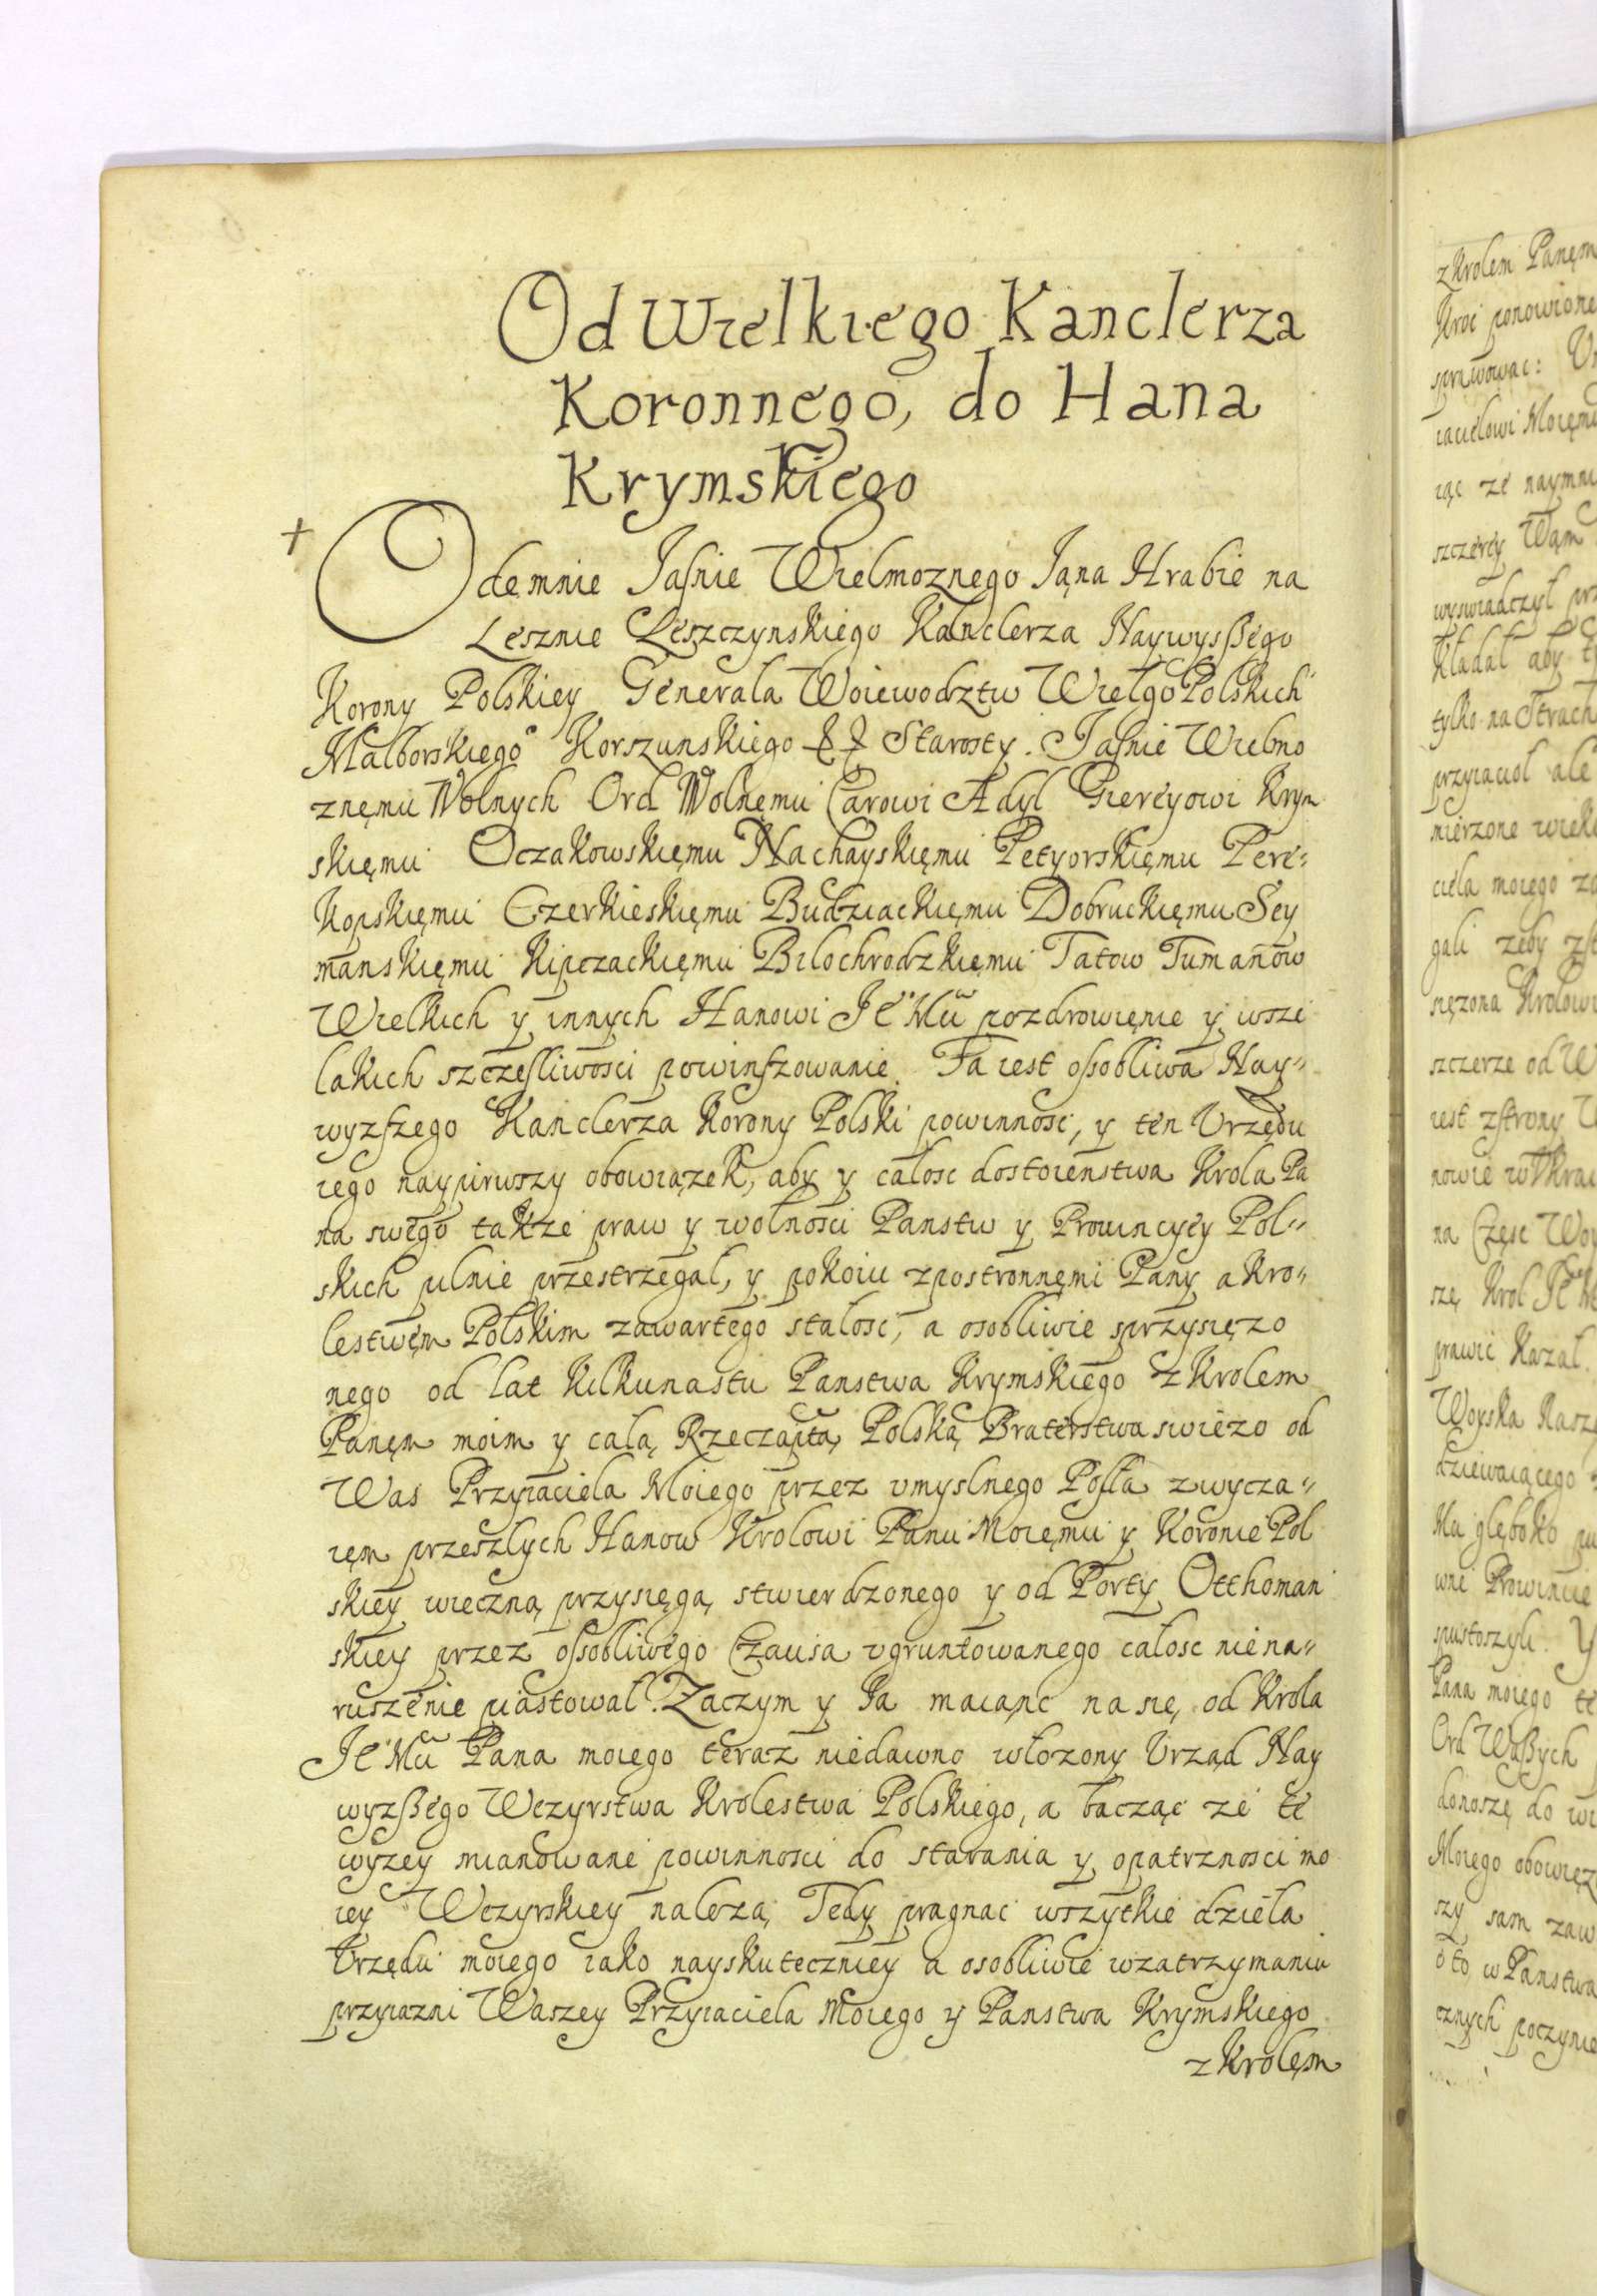 Od Wielkiego Kanclerza
Koronnego, do Hana
Krymskiego
+
Odemnie Jasnie Wielmoznego Jana Hrabie na
Lesznie Leszczynskiego Kanclerza Naywyszßego
Korony Polskiey Generala Woiewodztw WielgoPolskich
Malborskiego Korszunskiego Starosty. Jasnie Wielmo
znęmu Wolnych Ord Wolnęmu Carowi Adyl Giereyowi Krym
skięmu Oczakowskięmu Nachayskięmu Petyorskięmu Pere=
kopskięmu Czerkieskięmu Budziackięmu Dobruckięmu Sey
manskięmu Kipczackięmu Bilochrodzkięmu Tatow Tumanow
Wielkich y innych Hanowi Je° Mci pozdrowięnie y wsze
lakich szczęsliwosci powinszowanie. Ta iest ossobliwa Nay=
wyzszego Kanclerza Korony Polski powinnosc, y ten Urzędu
iego naypirwszy obowiązek, aby y całosc dostoienstwa Krola Pa
na swego takze praw y wolnosci Panstw y Prowincyey Pol=
skich pilnie przestrzegal, y pokoiu zpostronnęmi Pany a Kro=
lestwęm Polskim zawartego stalosc, a osobliwie sprzysięzo
nego od lat kilkunastu Panstwa Krymskiego z Krolem
Panęm moim y całą Rzecząptą Polską Braterstwa swiezo od
Was Przyiaciela Moiego przez umyslnego Posła zwycza=
ięm przeszlych Hanow Krolowi Panu Moięmu y Koronie Pol
skiey wieczną przysięgą stwierdzonego y od Porty Otthoman
skiey przez ossobliwego Czausa ugruntowanego całosc niena=
ruszenie piastowal. Zaczym y Ja maiąnc na się od Krola
Je° Mci Pana moiego teraz niedawno włozony Urząd Nay
wyzßego Wezyrstwa Krolestwa Polskiego, a bacząc ze te
wyzey mianowane powinnosci do starania y opatrznosci mo
iey Wezyrskiey nalezą, Tedy pragnąc wszytkie dzieła
Urzędu moiego iako nayskuteczniey a osobliwie wzatrzymaniu
przyiazni Waszey Przyiaciela Moiego y Panstwa Krymskiego
z Krolęm
z Krolem Panęm
ponowione
sprawowac:
iacielowi Moięmu
iąc ze naymni
szczerey Wąm
wyswiadczyl
kladal aby
tylko na Strach
przyiaciol ale
mierzone
ciela moiego
gali zeby
Krolowi
szczerze od
iest zstrony
na Częsc
szę Krol
prawic kazal.
Woyska Nasze
dziewaiącego
głęboko
wne Prowincie
spustoszyli.
Pana moiego
Ord Waßych
donoszę do
Moiego obowięz
szy sam
o to w Panstwa
cznych poczynie